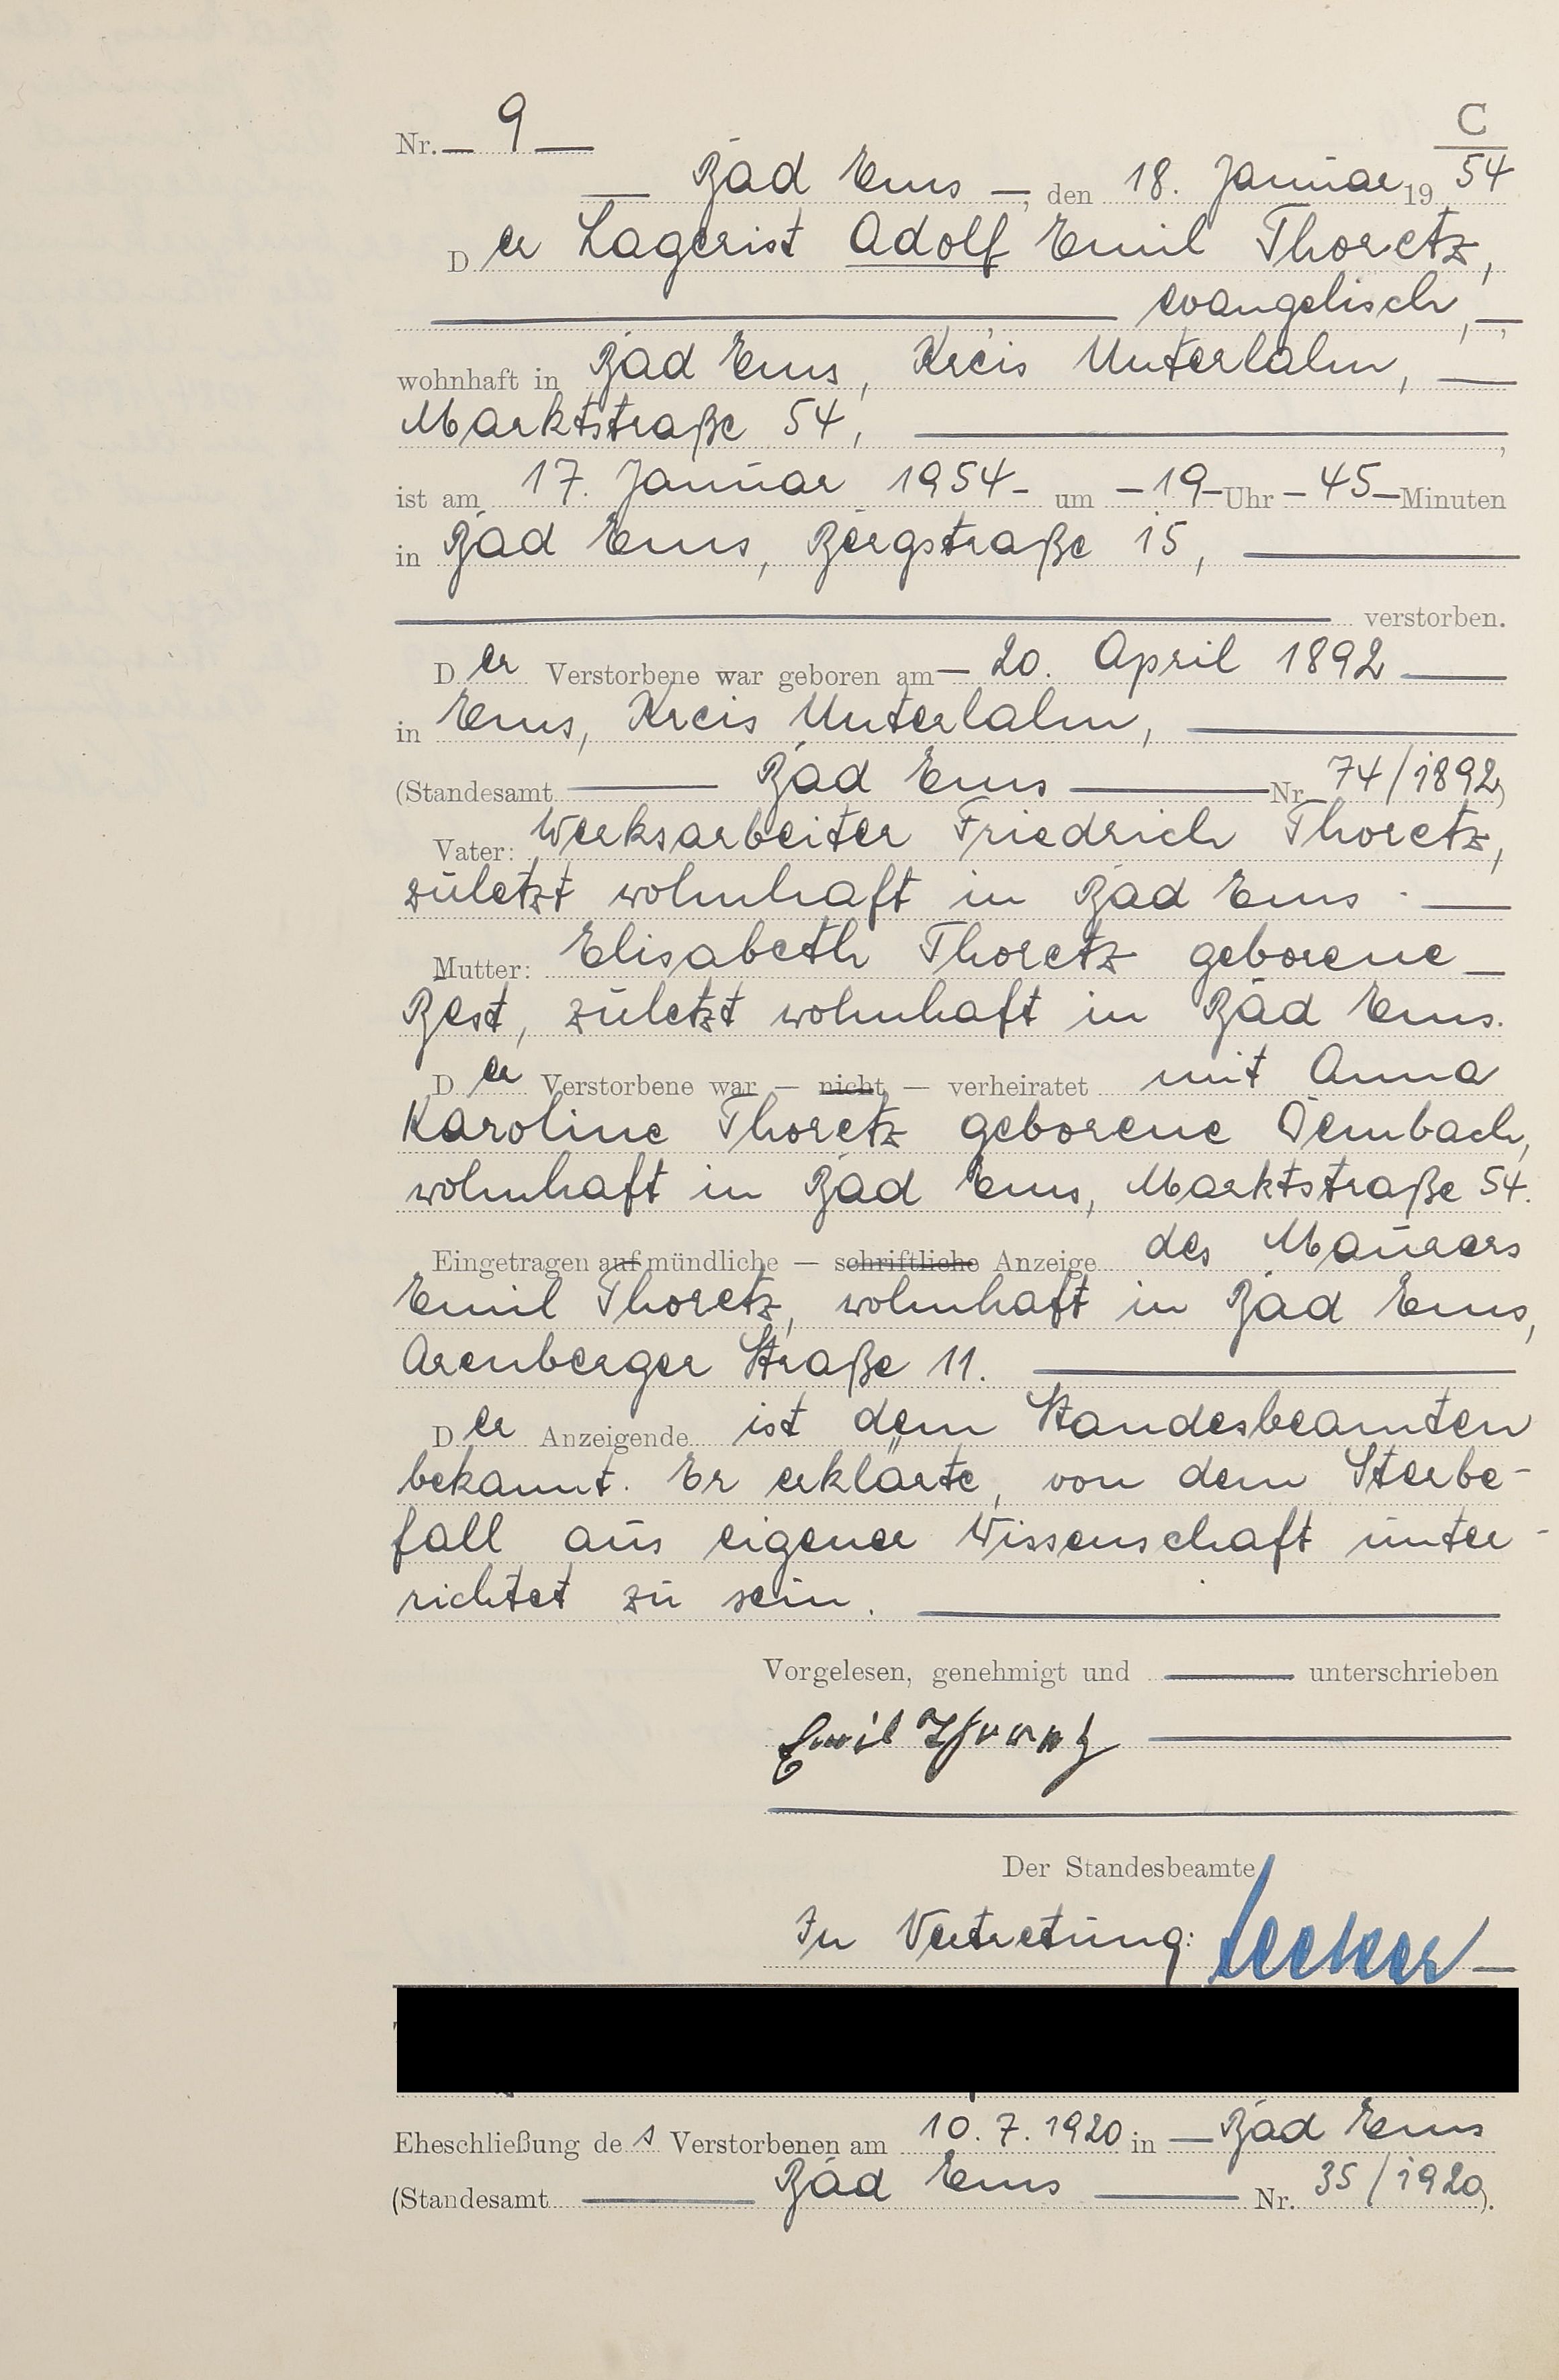 Nr. 9
C
Bad Ems, den 18. Januar 1954
Der Lagerist Adolf Emil Thoretz,
evangelisch,
wohnhaft in Bad Ems, Kreis Unterlahn,
Marktstraße 54,
ist am 17. Januar 1954 um 19 Uhr 45 Minuten
in Bad Ems, Bergstraße 15,
verstorben.
Der Verstorbene war geboren am 20. April 1892
in Ems, Kreis Unterlahn,
(Standesamt Bad Ems Nr. 74/1892)
Vater: Werksarbeiter Friedrich Thoretz,
zuletzt wohnhaft in Bad Ems.
Mutter: Elisabeth Thoretz geborene
Best, zuletzt wohnhaft in Bad Ems.
Der Verstorbene war — nicht — verheiratet mit Anna
Karoline Thoretz geborene Dembach,
wohnhaft in Bad Ems, Marktstraße 54.
Eingetragen auf mündliche — schriftliche Anzeige des Maurers
Emil Thoretz, wohnhaft in Bad Ems,
Arenberger Straße 11.
Der Anzeigende ist dem Standesbeamten
bekannt. Er erklärte, von dem Sterbe-
fall aus eigener Wissenschaft unter-
richtet zu sein.
Vorgelesen, genehmigt und unterschrieben
Emil Thoretz
Der Standesbeamte
In Vertretung:
Eheschließung des Verstorbenen am 10.7.1920 in Bad Ems
(Standesamt Bad Ems Nr. 35/1920).